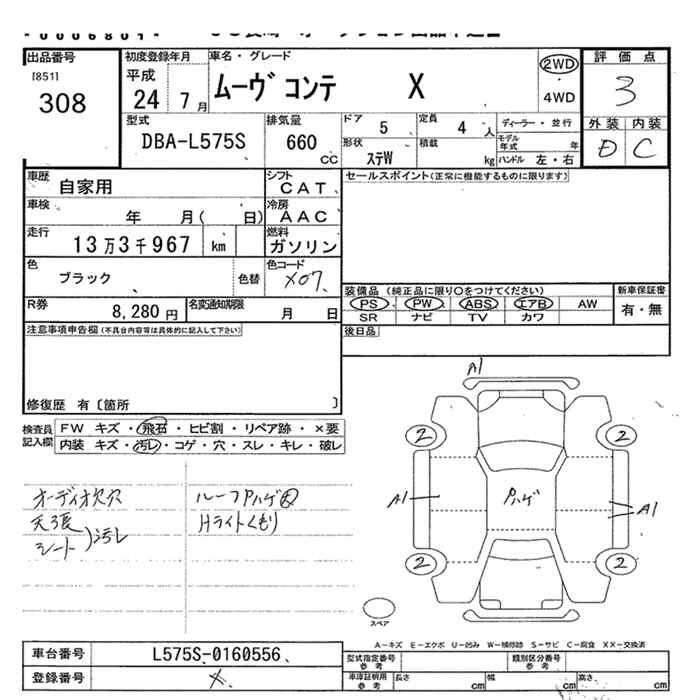 *0006801*
出品番号
[851]
308
初度登録年月
平成
24年7月
車名・グレード
ムーヴ コンテ X
2WD
4WD
評価点
3
型式
DBA-L575S
排気量
660 CC
ドア 5
定員 4 人
ディーラー・並行
モデル年式 年
外装 内装
D C
形状 ステW
積載 kg
ハンドル 左・右
車歴 自家用
シフト CAT
セールスポイント(正常に機能するものに限ります)
車検 年 月( 日)
冷房 AAC
走行 13万3千967 km
燃料 ガソリン
色 ブラック 色替
色コード X07
R券 8,280円
名変通知期限 月 日
装備品 (純正品に限り○をつけてください)
新車保証書
PS PW ABS エアB AW
有・無
SR ナビ TV カワ
後日品
注意事項申告欄(不具合内容等は具体的に記入して下さい)
修復歴 有〔箇所 〕
検査員記入欄
FW キズ・飛石・ヒビ割・リペア跡・×要
内装 キズ・汚レ・コゲ・穴・スレ・キレ・破レ
オーディオ欠穴
天張
シート )汚レ
ルーフPハゲ大
Hライトくもり
A1
2 2
A1 Pハゲ A1
2 2
スペア
A-キズ E-エクボ U-凹み W-補修跡 S-サビ C-腐食 XX-交換済
車台番号 L575S-0160556
型式指定番号 参考
類別区分番号 参考
登録番号
車庫証明用 参考
長さ cm 幅 cm 高さ cm